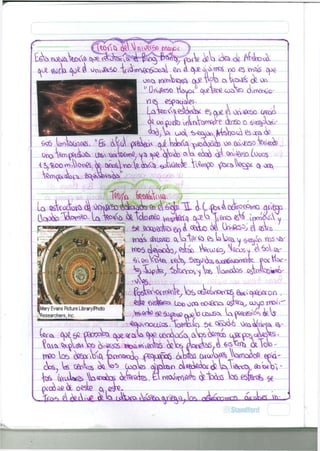 Teoría del Universo mapa
Esta nueva teoría que refutaría el Bing Bang, parte de la idea de Afshordi
que decía que el universo tridimensional en el que vivimos no es más que
una membrana que flota a través de un
"Universo Mayor" que tiene cuatro dimensio
nes espaciales.
La teoría estándar es que el universo creció
de un punto infinitamente denso o singulari-
dad, la cual, según Afshordi es una de
sus limitaciones. "Es difícil predecir que habría producido un universo teniendo
una temperatura casi uniforme, ya que dado a la edad del universo (unos
13,800 millones de años) no le daría suficiente tiempo para llegar a una
temperatura equilibrada"
Teoría Geocéntrica
La estructura del universo elaborada en el siglo II d.C. por el astrónomo griego
Claudio Tolomeo. La teoría de Tolomeo mantenía que la Tierra está inmóvil y
se encuentra en el centro del Universo; el astro
más cercano a la Tierra es la Luna y según nos va-
mos alejando, están Mercurio, Venus y el Sol ca-
si en línea recta, seguidos sucesivamente por Mar-
te, Júpiter, Saturno y las llamadas estrellas inmó-
viles.
Posteriormente, los astrónomos enriquecieron
este sistema con una novena esfera, cuyo movi-
miento se supone que lo causa la precesión de los
equinoccios. También se añadió una décima es-
Mary Evans Picture Library/Photo
Researchers, Inc.
fera que se pensaba que era la que conducía a los demás cuerpos celestes.
Para explicar los diversos movimientos de los planetas, el sistema de Tolo-
meo los describía formando pequeñas órbitas circulares llamadas epici-
clos, los centros de los cuales giraban alrededor de la Tierra, en órbi-
tas circulares llamadas deferentes. El movimiento de todas las esferas se
produce de oeste a este.
Tras el declive de la cultura clásica griega, los astrónomos árabes in-
Standford